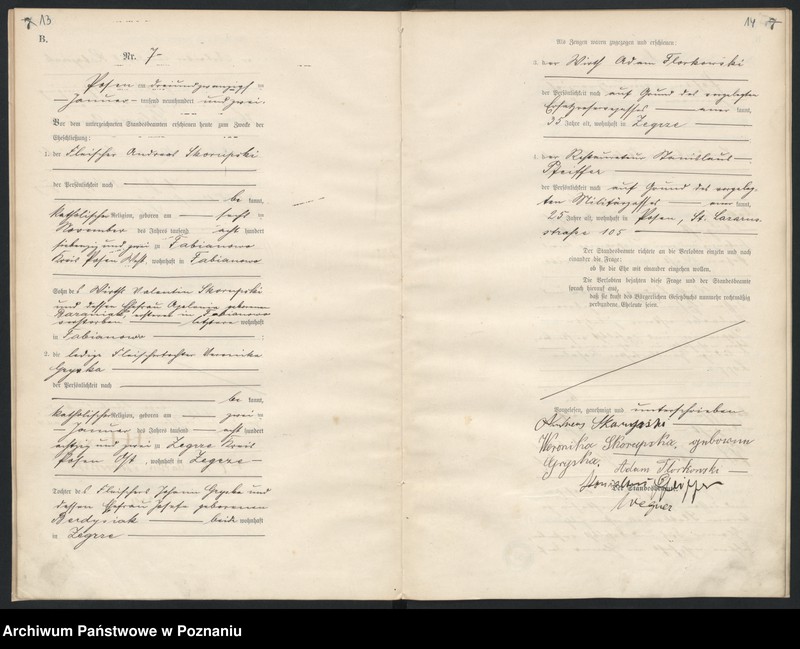 13
B.
Nr. 7
Posen am dreiundzwanzigsten
Januar tausend neunhundert und zwei.
Vor dem unterzeichneten Standesbeamten erschienen heute zum Zwecke der
Eheschließung:
1. der Fleischer Andreas Skorupski
der Persönlichkeit nach
be kannt,
katholischer Religion, geboren am sechsten
November des Jahres tausend acht hundert
siebenzig und zwei zu Fabianowo
Kreis Posen West, wohnhaft in Fabianowo
Sohn des Wirths Valentin Skorupski
und dessen Ehefrau geborenen
ersterer in Fabianowo
verstorben letztere wohnhaft
in Fabianowo
2. die ledige Fleischertochter Veronika
Gryska
der Persönlichkeit nach
be kannt,
katholischer Religion, geboren am zweiten
Januar des Jahres tausend acht hundert
achtzig und zwei zu Zegrze Kreis
Posen Ost, wohnhaft in Zegrze
Tochter des Fleischers Johann Gryska und
dessen Ehefrau Josefa geborenen
beide wohnhaft
in Zegrze
14
Als Zeugen waren zugezogen und erschienen:
3. der Wirth Adam Florkowski
der Persönlichkeit nach auf Grund des vorgelegten
Ersatzreservepasses aner kannt,
35 Jahre alt, wohnhaft in Zegrze
4. der Restaurateur Stanislaus
Pfeiffer
der Persönlichkeit nach auf Grund des vorgeleg-
ten Militärpasses aner kannt,
25 Jahre alt, wohnhaft in Posen, St. Lazarus
straße 105
Der Standesbeamte richtete an die Verlobten einzeln und nach
einander die Frage:
ob sie die Ehe mit einander eingehen wollen.
Die Verlobten bejahten diese Frage und der Standesbeamte
sprach hierauf aus,
daß sie kraft des Bürgerlichen Gesetzbuchs nunmehr rechtmäßig
verbundene Eheleute seien.
Vorgelesen, genehmigt und unterschrieben
Andreas Skorupski
Weronika Skorupska, geborene
Gryska.
Adam Florkowski
Stanislaus Pfeiffer
Der Standesbeamte.
Wegner
Archiwum Państwowe w Poznaniu